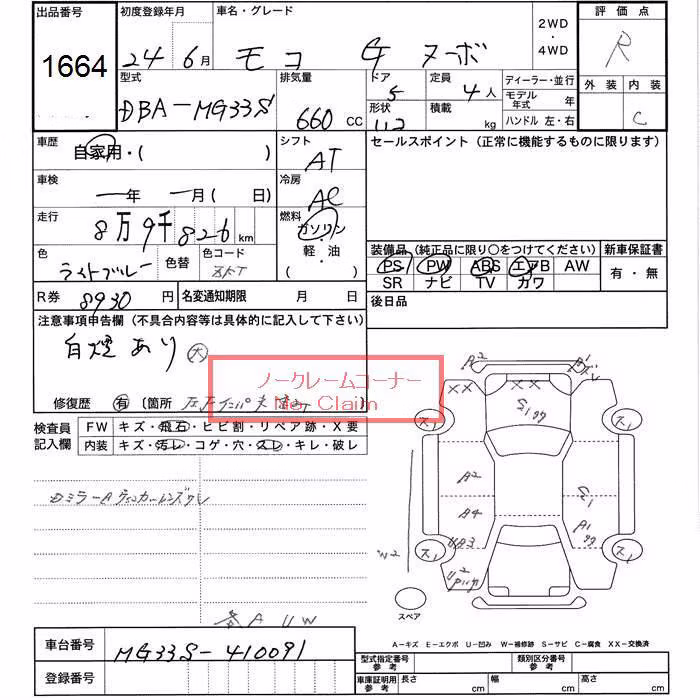 出品番号 初度登録年月 車名・グレード 2WD・4WD 評価点
1664 24年6月 モコ G ヌーボ R
型式 排気量 ドア 定員 ディーラー・並行 外装 内装
DBA-MG33S 660 CC 5 4人 モデル年式 年 C
形状 積載 kg ハンドル 左・右
車歴 自家用・( ) シフト AT セールスポイント (正常に機能するものに限ります)
車検 一年 一月( 日) 冷房 AC
走行 8万9千826km 燃料 ガソリン 軽・油 ( )
色 ライトブルー 色替 色コード
装備品 (純正品に限り○をつけてください) 新車保証書
PS PW ABS エアB AW 有・無
SR ナビ TV カワ
R券 8930円 名変通知期限 月 日 後日品
注意事項申告欄 (不具合内容等は具体的に記入して下さい)
自煙あり 大
ノークレームコーナー
No Claim
修復歴 有 〔箇所
検査員記入欄 FW キズ・飛石・ヒビ割・リペア跡・X要
内装 キズ・汚レ・コゲ・穴・スレ・キレ・破レ
A2
XX XX
ス1 ス1
A2
A4 A1
UA3
W2
ス1 ス1
スペア
A UW
A-キズ E-エクボ U-凹み W-補修跡 S-サビ C-腐食 XX-交換済
車台番号 MG33S-410091
型式指定番号 参考 類別区分番号 参考
登録番号 車庫証明用 参考 長さ cm 幅 cm 高さ cm